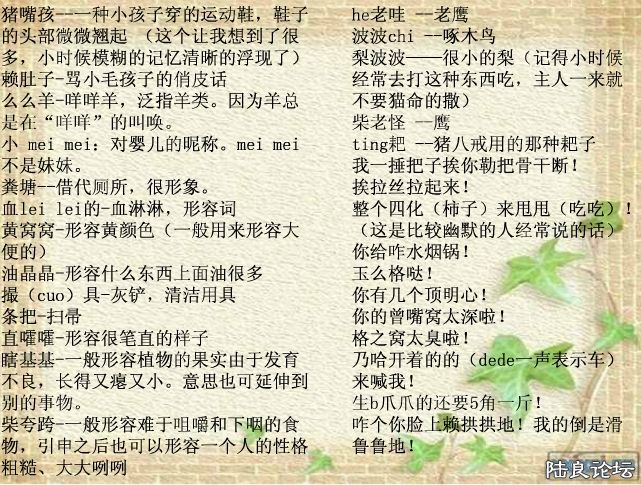 猪嘴孩---一种小孩子穿的运动鞋，鞋子
的头部微微翘起 （这个让我想到了很
多，小时候模糊的记忆清晰的浮现了）
赖肚子-骂小毛孩子的俏皮话
么么羊-咩咩羊，泛指羊类。因为羊总
是在“咩咩”的叫唤。
小 mei mei: 对婴儿的昵称。mei mei
不是妹妹。
粪塘--借代厕所，很形象。
血lei lei的-血淋淋，形容词
黄窝窝-形容黄颜色（一般用来形容大
便的）
油晶晶-形容什么东西上面油很多
撮（cuo）具-灰铲，清洁用具
条把-扫帚
直嚯嚯-形容很笔直的样子
瞎基基-一般形容植物的果实由于发育
不良，长得又瘪又小。意思也可延伸到
别的事物。
柴夸跨-一般形容难于咀嚼和下咽的食
物，引申之后也可以形容一个人的性格
粗糙、大大咧咧
he老哇 --老鹰
波波chi --啄木鸟
梨波波——很小的梨（记得小时候
经常去打这种东西吃，主人一来就
不要猫命的撒）
柴老怪 --鹰
ting耙 --猪八戒用的那种耙子
我一捶把子挨你勒把骨干断！
挨拉丝拉起来！
整个四化（柿子）来甩甩（吃吃）！
（这是比较幽默的人经常说的话）
你给咋水烟锅！
玉么格哒！
你有几个顶明心！
你的曾嘴窝太深啦！
格之窝太臭啦！
乃哈开着的的（dede一声表示车）
来喊我！
生b爪爪的还要5角一斤！
咋个你脸上赖拱拱地！我的倒是滑
鲁鲁地！
陆良论坛